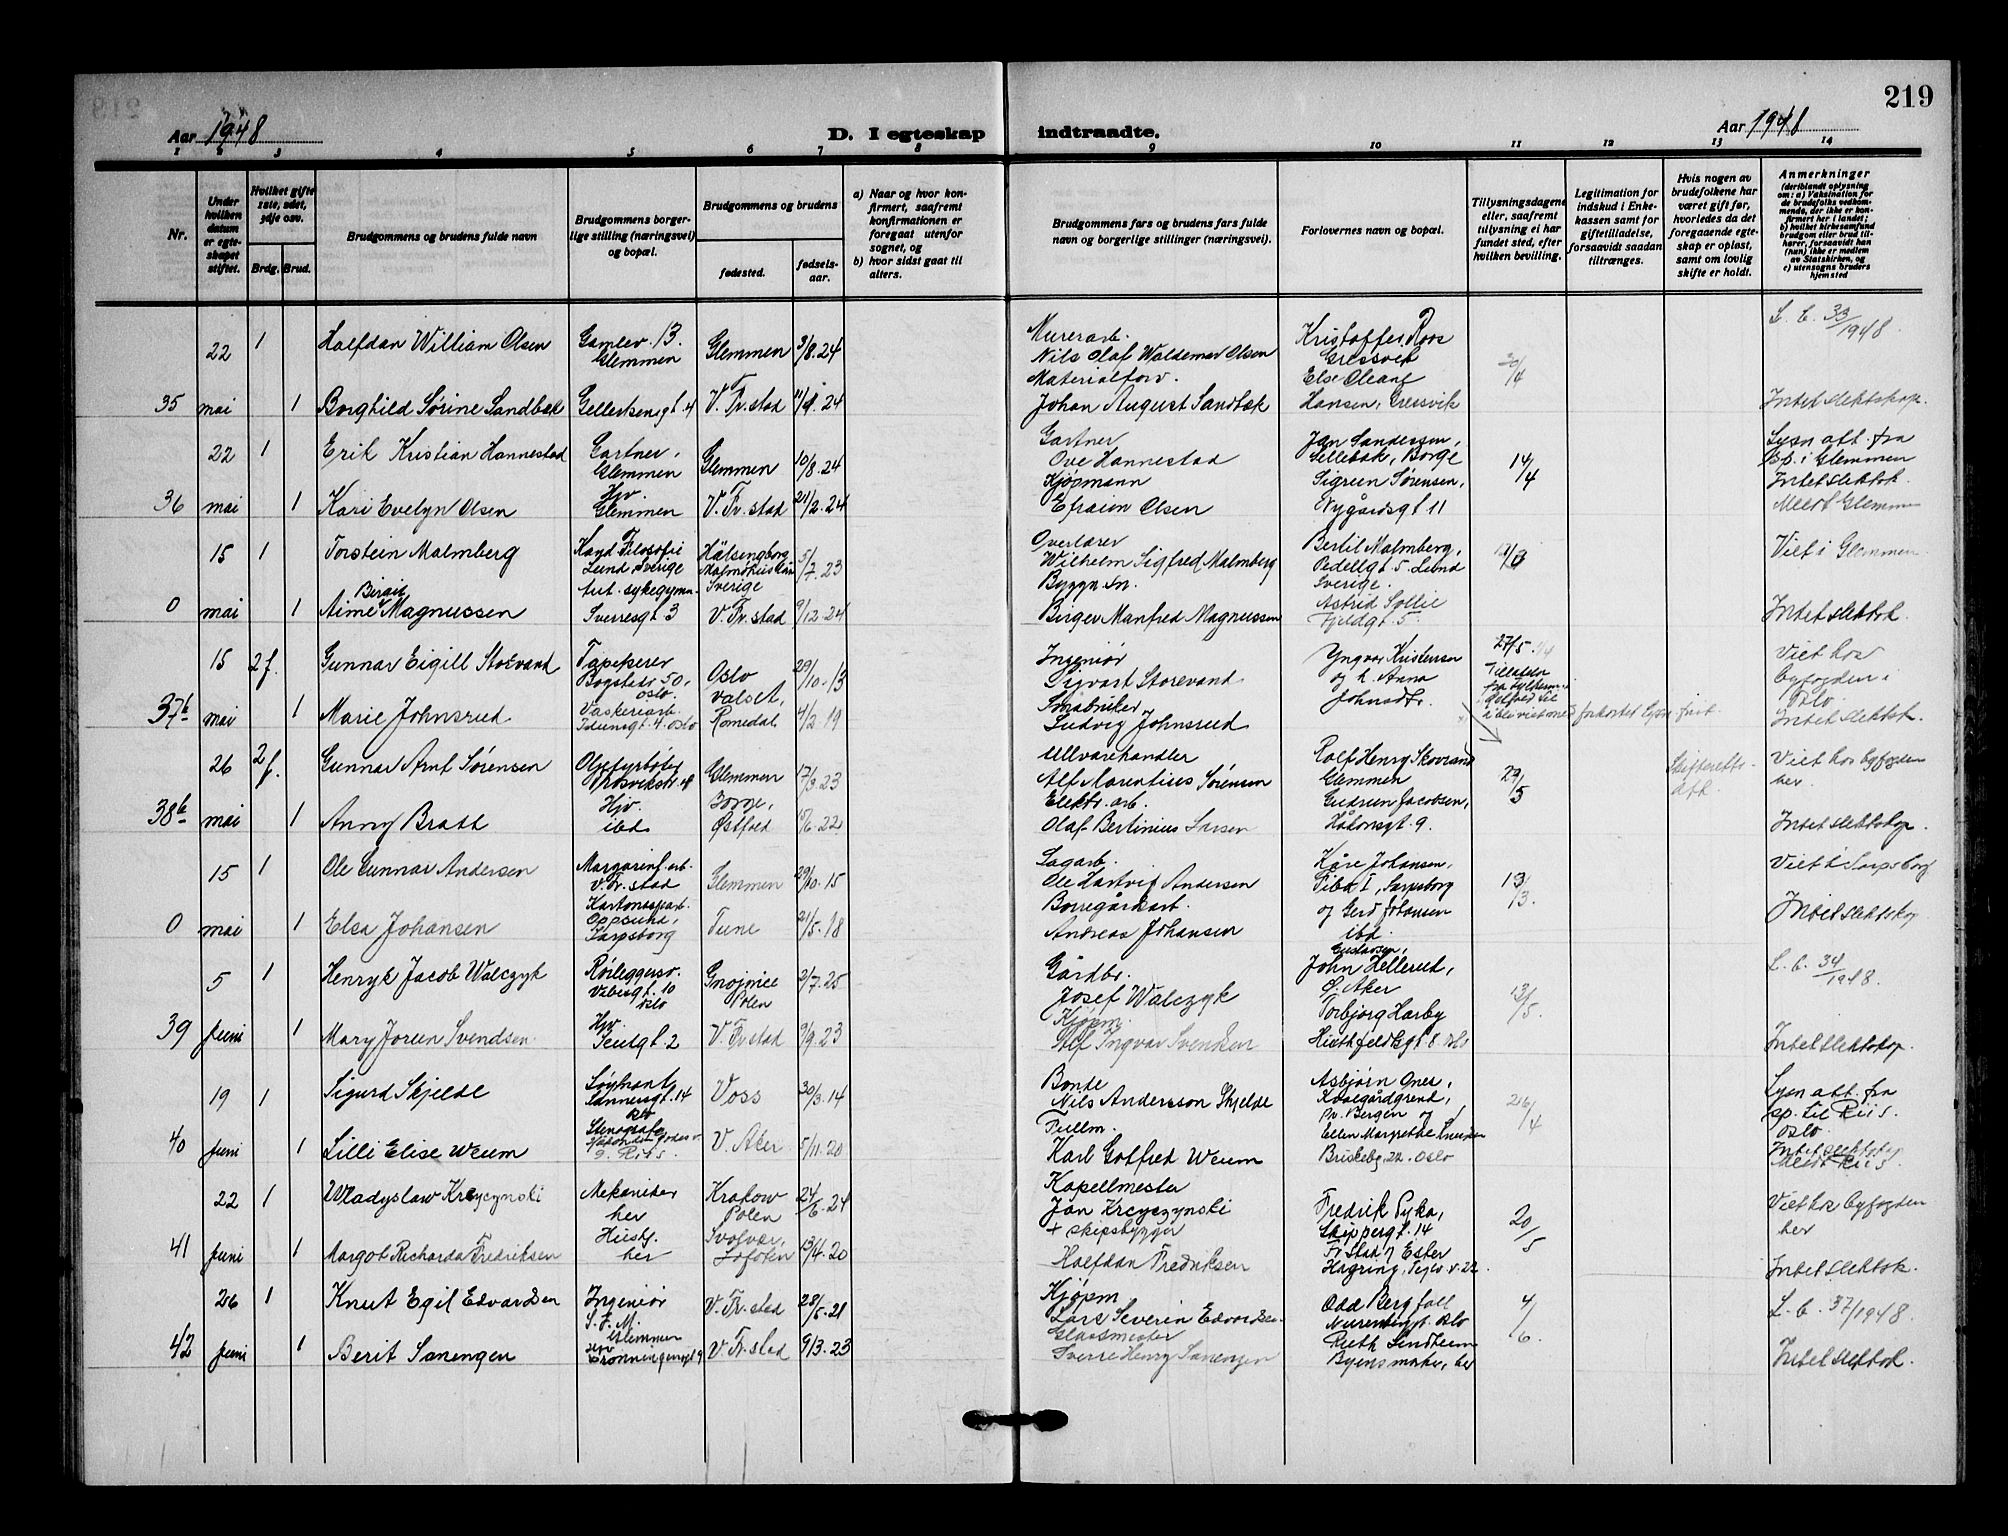 219
Aar 1948
D. I egteskap indtraadte.
Aar 1948
1 2 3 4 5 6 7 8 9 10 11 12 13 14
Nr.
Under hvilken datum er egteskapet stiftet.
Hvilket gifte 1ste, 2det, 3dje osv.
Brdg. Brud.
Brudgommens og brudens fulde navn
Brudgommens borgerlige stilling (næringsvei) og bopæl.
Brudgommens og brudens
fødested.
fødselsaar.
a) Naar og hvor konfirmert, saafremt konfirmationen er foregaat utenfor sognet, og
b) hvor sidst gaat til alters.
Brudgommens fars og brudens fars fulde navn og borgerlige stillinger (næringsvei).
Forlovernes navn og bopæl.
Tillysningsdagene eller, saafremt tillysning ei har fundet sted, efter hvilken bevilling.
Legitimation for indskud i Enkekassen samt for giftetilladelse, forsaavidt saadan tiltrænges.
Hvis nogen av brudefolkene har været gift før, hvorledes da det foregaaende egteskap er opløst, samt om lovlig skifte er holdt.
Anmerkninger
(deriblandt oplysning om: a) Vaksination for de brudefolks vedkommende, der ikke er konfirmert her i landet; b) hvilket kirkesamfund brudgom eller brud tilhører, forsaavidt han (hun) ikke er medlem av Statskirken, og c) utensogns bruders hjemsted
22 1 Halfdan William Olsen Gamlev. 13. Glemmen Glemmen 3/8.24 Murerarb. Nils Olaf Waldemar Olsen Kristoffer Roos Gressvik 30/4 L. b. 33/1948.
35 mai 1 Borghild Sørine Sandbæk Gellertsengt 4 V. Fr.stad 11/9.24 Materialforv. Johan August Sandbæk Else Oleane Hansen, Gressvik Intet slektskap.
22 1 Erik Kristian Hannestad Gartner, Glemmen Glemmen 10/8.24 Gartner Ove Hannestad Jan Sanderssen, Sellebak, Borge 14/4 Lysn. att. fra sp. i Glemmen
36 mai 1 Kari Evelyn Olsen Hjv. Glemmen V. Fr.stad 21/2.24 Kjøpmann Efraim Olsen Sigrun Sørensen, Nygårdsgt 11 Intet slektsk. Meldt Glemmen
15 1 Torstein Malmberg Kand. Filosofi Lund, Sverige Hälsingborg Malmöhus Län Sverige 5/7.23 Overlærer Wilhelm Sigfred Malmberg Bertil Malmberg, Pedellgt 5. Lund Sverige. Viet i Glemmen
0 mai 1 Aimé Birgit Magnussen Aut. sykegymn. Sverresgt 3 V. Fr.stad 9/12.24 Byggm. Birger Manfred Magnussen Astrid Sollie Fjeldgt. 5. Intet slektsk.
15 2 f. Gunnar Eigill Storvand Tapetserer Bogstadv 50. Oslo. Oslo 29/10.13 Ingeniør Sigvart Storevand Yngvar Kristensen og h. Anna Johnsdtr. 27/5 Viet hos byfogden i Oslo
37b mai 1 Marie Johnsrud Vaskeriarb. Idunsgt. 4. Oslo Valset, Romedal 4/2 19 Småbruker Ludvig Johnsrud forkortet lysn. frist. Intet slektsk.
26 2 f. Gunnar Arnt Sørensen Oljefyrbøter Glemmen 17/3.23 Ullvarehandler Alf Marentius Sørensen Rolf Henry Skovrand Glemmen 29/5 Skifteretts-att. Viet hos byfogden her.
38b mai 1 Anny Bratt Hjv. ibd Borge, Østfold 15/6.22 Elektr. arb. Olaf Bertinius Larsen Gudrun Jacobsen, Håkonsgt. 9. Intet slektskap.
15 1 Ole Gunnar Andersen Margarinf. arb. V. Fr. stad Glemmen 29/10.15 Sagarb. Ole Hartvig Andersen Kåre Johansen, Tibk I, Sarpsborg 13/3. Viet i Sarpsborg
0 mai 1 Elsa Johansen Kartonnsparb. Oppsund, Sarpsborg Tune 21/5.18 Borregårdarb. Andreas Johansen og Gerd Johansen ibd. Intet slektskap
5 1 Henryk Jacob Walczyk Rørleggersv. Vibesgt. 10 Oslo Gnojnice Polen 2/7.25 Gårdbr. Josef Walczyk John Gustavsen, Hellerud, Ø. Aker 13/5. L. b. 34/1948.
39 juni 1 Mary Jorun Svendsen. Hjv. V. Fr.stad 9/9.23 Kjøpm. Alf Ingvar Svendsen Torbjørg Harby Huitfeldtsgt 8 Oslo Intet slektskap.
19 1 Sigurd Skjelde Løytnant Sannersgt. 14 Oslo Voss 30/3.14 Bonde Nils Andersson Skjelde Asbjørn Ones, pr. Bergen og 26/4 Lysn att. fra sp. til Riis. Oslo
40 juni 1 Lilli Elise Weum Stenograf V. Aker 5/11.20 Fullm. Karl Gotfred Weum Ellen Margrethe Knudsen Briskeby. 22. Oslo Intet slektskap Meldt Riis.
22 1 Wladyslaw Kryczynski Mekaniker her Krakow Polen 24/6.24 Kapellmester Jan Kreyszynski Fredrik Syka, Skippergt. 14 20/5 Viet hos byfogden her
41 juni 1 Margot Richarda Fredriksen Hust. her Svolvær, Lofoten 13/4.20 + skipsbygger Halfdan Fredriksen Fr.stad og Ester Hagring, Teglv. 22. Intet slektsk.
26 1 Knut Egil Edvardsen Ingeniør S. F. M. Glemmen V. Fr.stad 28/5.21 Kjøpm. Lars Severin Edvardsen Odd Bergfall Oslo 4/6. L. b. 37/1948.
42 juni 1 Berit Sanengen Hjv. Dronningensgt 9 V. Fr.stad 9/3.23 Glassmester Sverre Henry Sanengen Ruth Lindheim Byens marker, her Intet slektsk.